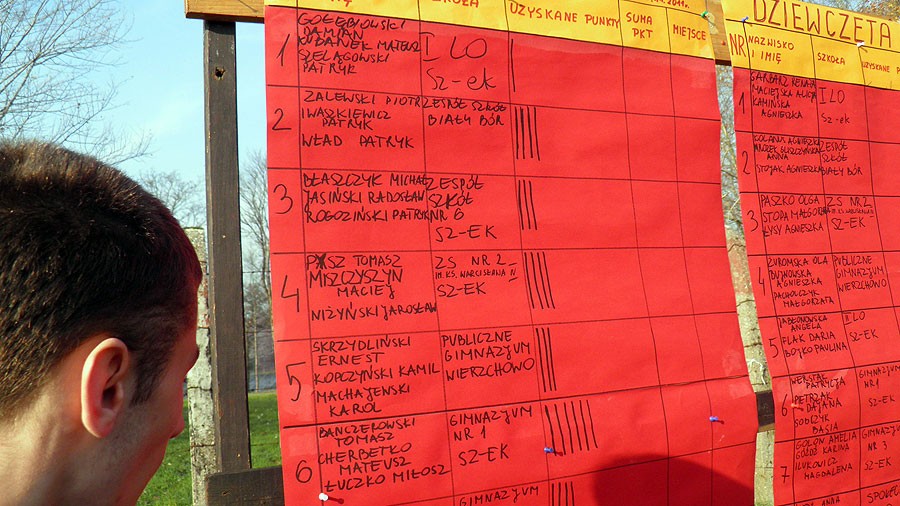 SZKOŁA
UZYSKANE PUNKTY
SUMA
PKT
MIEJSCE
2011r.
1
GOŁĘBIOWSKI
DAMIAN
KUBANEK MATEUSZ
SZELĄGOWSKI
PATRYK
I LO
SZ-ek
2
ZALEWSKI PIOTR
IWASZKIEWICZ
PATRYK
WŁAD PATRYK
ZESPÓŁ SZKÓŁ
BIAŁY BÓR
3
BŁASZCZYK MICHAŁ
JASIŃSKI RADOSŁAW
ROGOZIŃSKI PATRYK
ZESPÓŁ
SZKÓŁ
NR 6
SZ-EK
4
TOMASZ
MISZCZYSZYN
MACIEJ
NIŻYŃSKI JAROSŁAW
ZS NR 2
IM. KS. WARCISŁAWA IV
SZ-EK
5
SKRZYDLIŃSKI
ERNEST
KOPCZYŃSKI KAMIL
MACHAJENSKI
KAROL
PUBLICZNE
GIMNAZJUM
WIERZCHOWO
6
BANCZEROWSKI
TOMASZ
CHERBETKO
MATEUSZ
ŁUCZKO MIŁOSZ
GIMNAZJUM
NR 1
SZ-EK
GIMNAZJUM
DZIEWCZĘTA
NR
NAZWISKO
I IMIĘ
SZKOŁA
UZYSKANE
1
GARBARZ RENATA
MACIEJSKA ALICJA
KAMIŃSKA
AGNIESZKA
I LO
SZ-ek
2
AGNIESZKA
ANNA
STOJAK AGNIESZKA
ZESPÓŁ
SZKÓŁ
BIAŁY BÓR
3
PASZKO OLGA
STOPA MAŁGORZATA
ŁYSY AGNIESZKA
ZS NR 2
IM. KS. WARCISŁAWA IV
SZ-EK
4
ŻUROMSKA OLA
BUJNOWSKA
AGNIESZKA
PACHOLCZYK
MAŁGORZATA
PUBLICZNE
GIMNAZJUM
WIERZCHOWO
5
JABŁONOWSKA
ANGELA
FLAK DARIA
BOJKO PAULINA
II LO
SZ-EK
6
PATRYCJA
PIETRZAK
DAJANA
SOBCZYK
BASIA
GIMNAZJUM
NR 1
SZ-EK
7
GOLON AMELIA
KARINA
ILUKOWICZ
MAGDALENA
GIMNAZJUM
NR 3
SZ-EK
ANNA